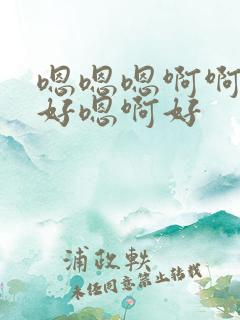 嗯嗯嗯啊啊
好嗯啊好
浦政轶
未经同意禁止转载